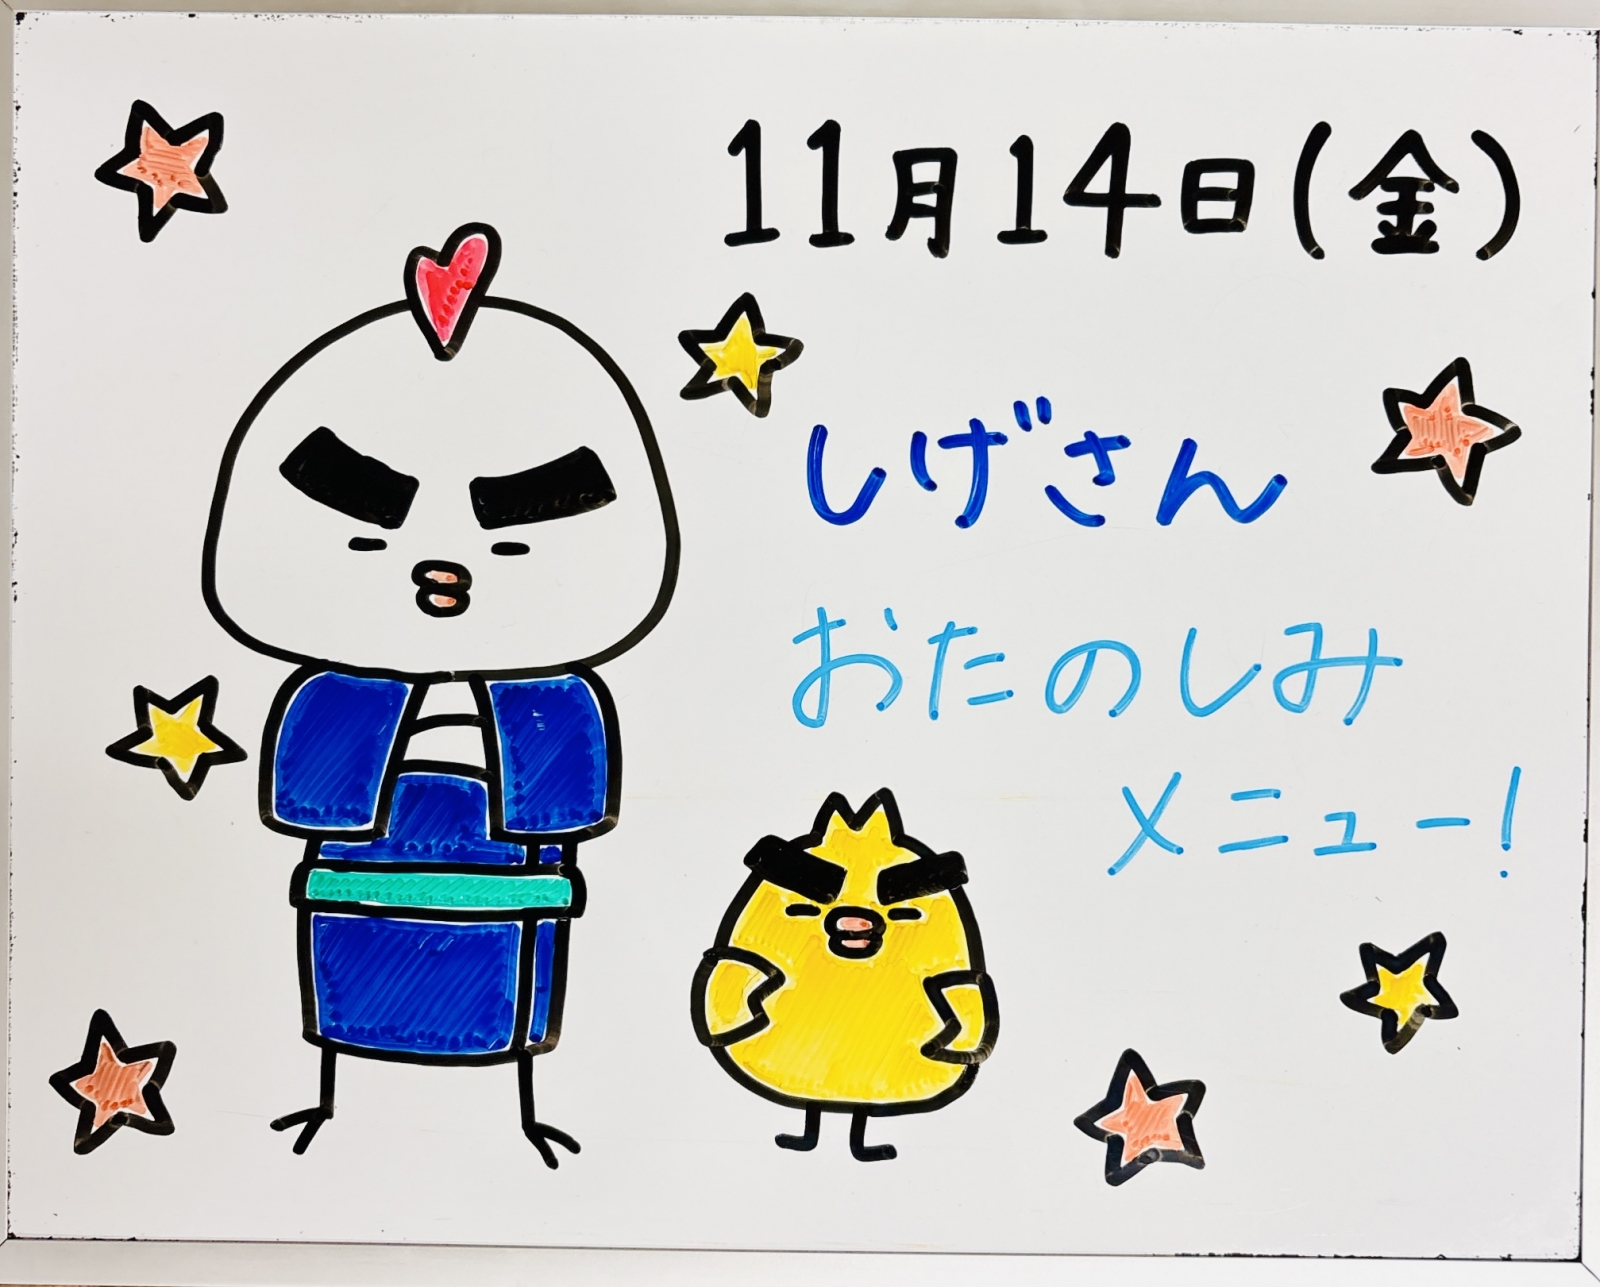 11月14日(金)
しげさん
おたのしみ
メニュー!